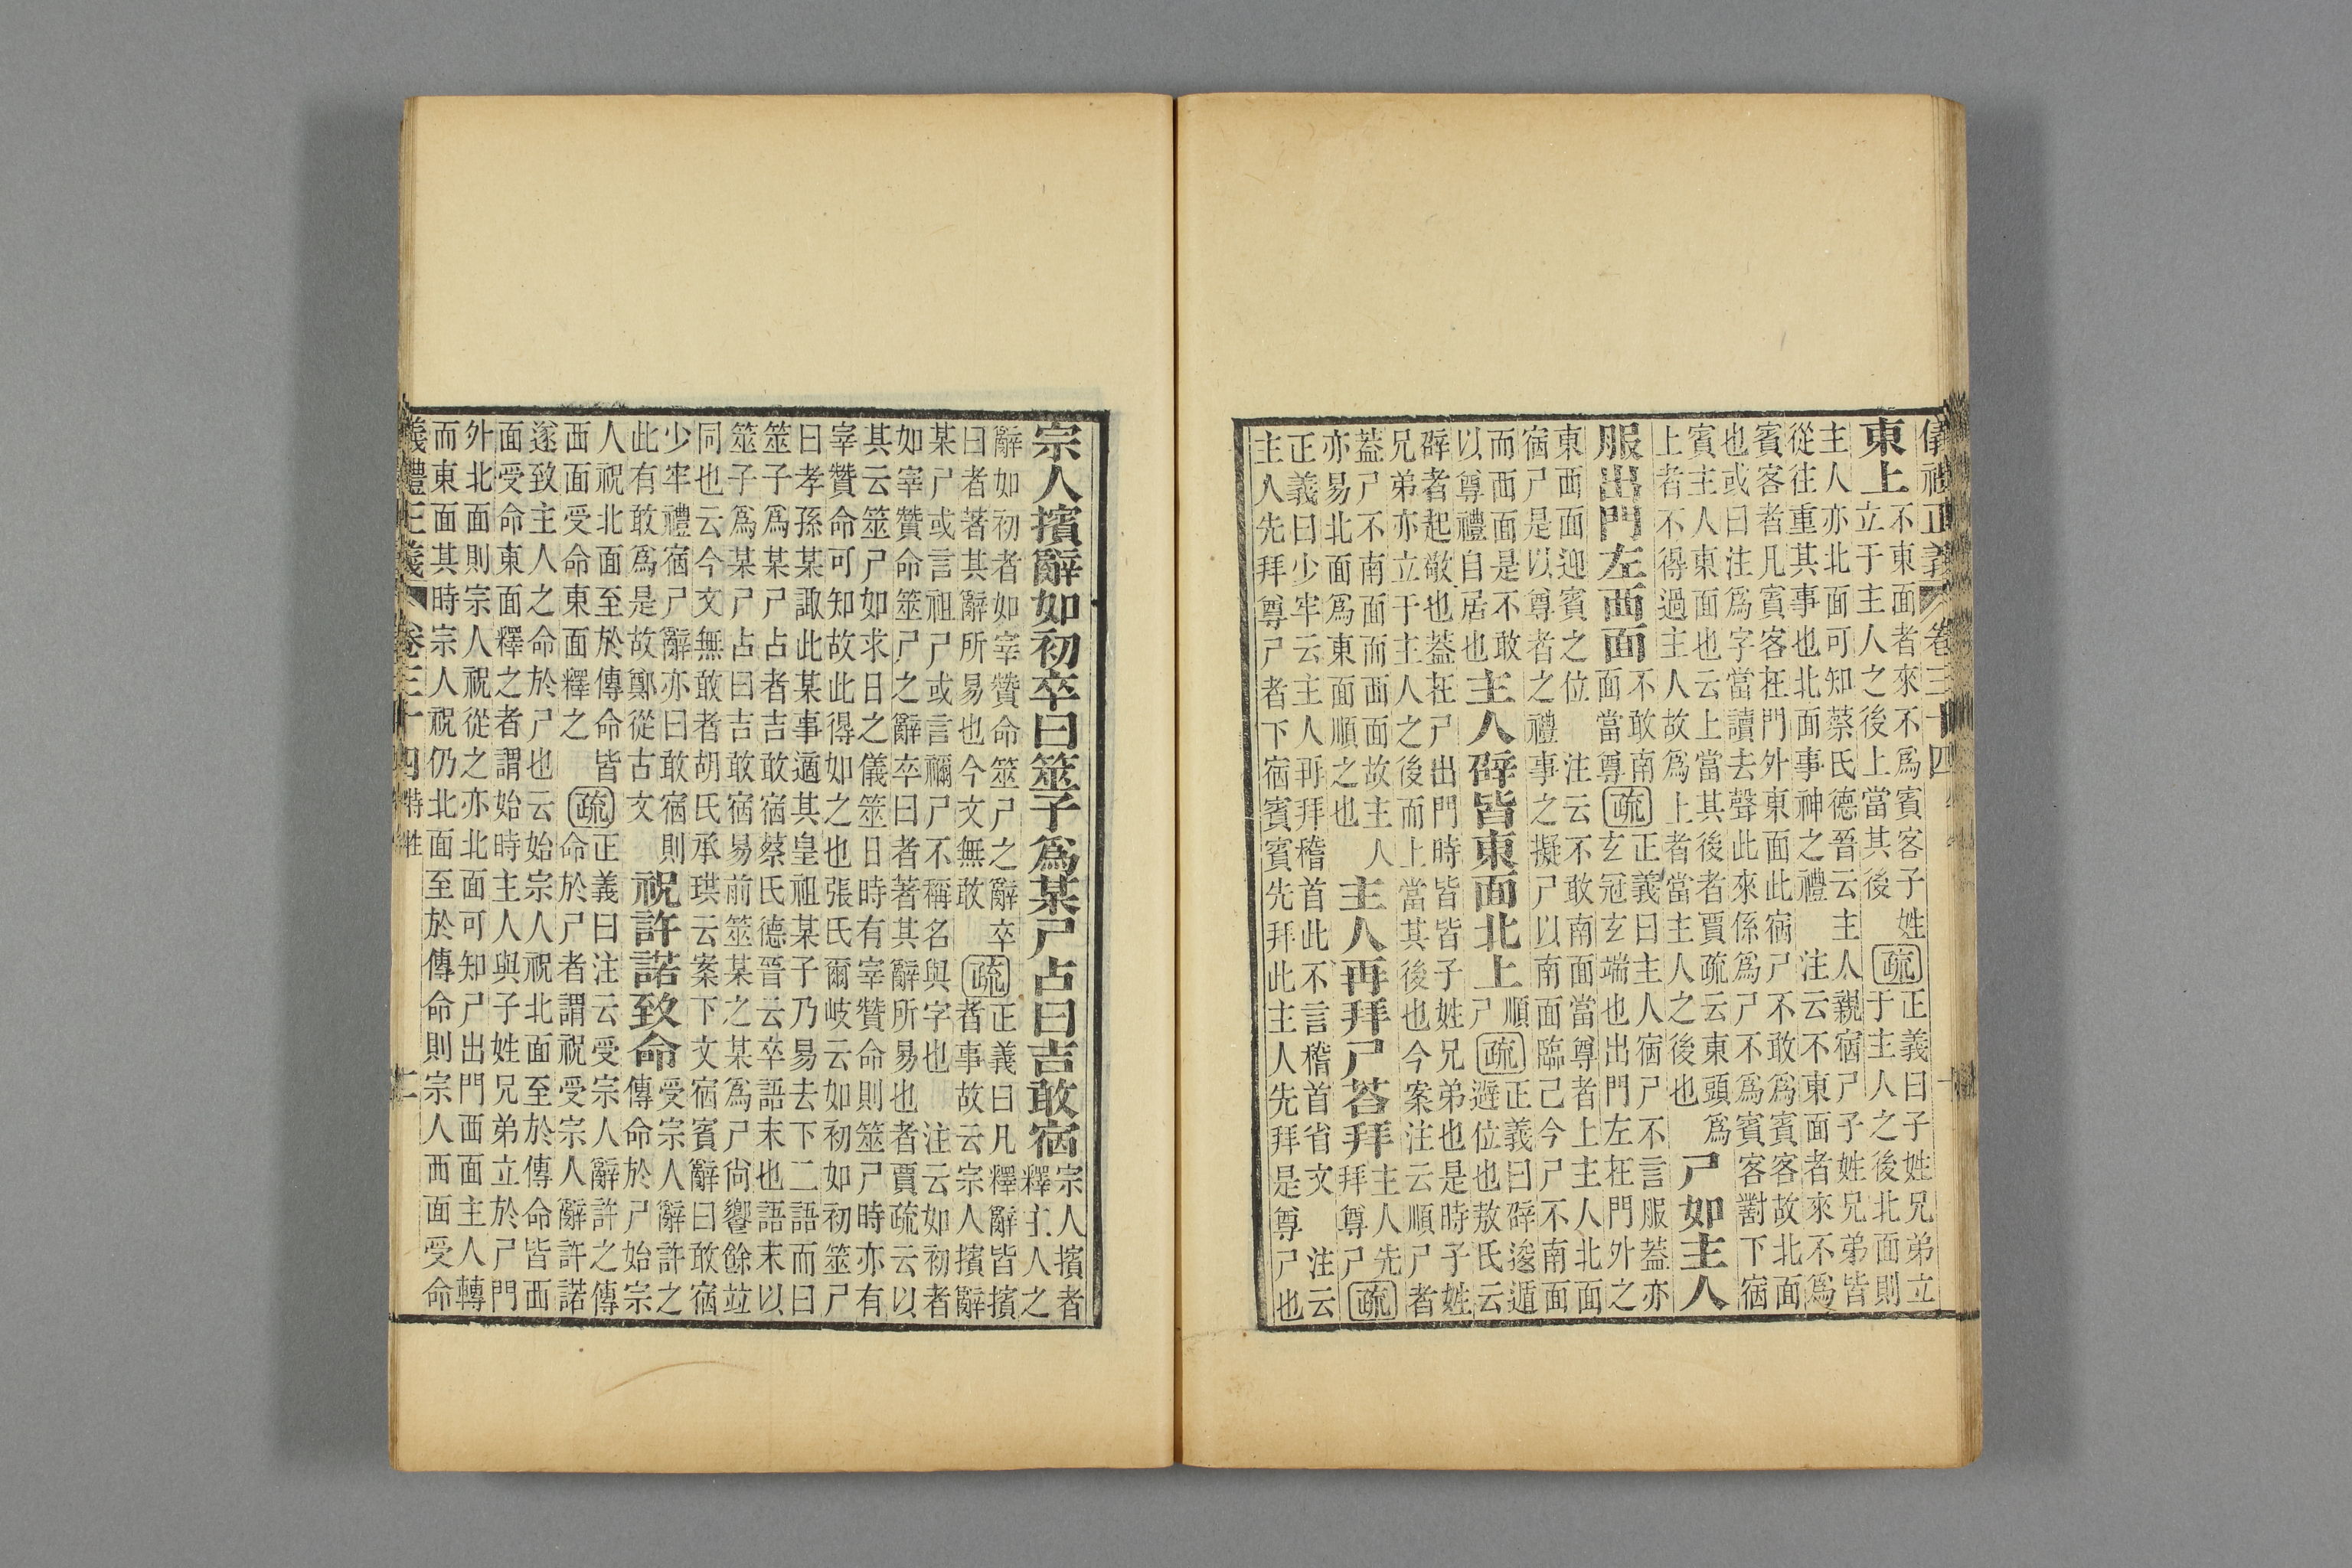 儀禮正義 卷三十四
東上不東面者來不爲賓客子姓立于主人之後上當其後疏正義曰子姓兄弟立于主人之後北面則
主人亦北面可知蔡氏德晉云主人親宿尸子姓兄弟皆
從往重其事也北面事神之禮 注云不東面者來不爲
賓客者凡賓客在門外東面此宿尸不敢爲賓客故北面
也或曰注爲字當讀去聲此來係爲尸不爲賓客對下宿
賓主人東面也云上當其後者賈疏云東頭爲上者不得過主人故爲上者當主人之後也尸如主人
服出門左西面不敢南面當尊疏正義曰主人宿尸不言服蓋亦玄冠玄端也出門左在門外之
東西面迎賓之位 注云不敢南面當尊者上主人北面
宿尸是以尊者之禮事之擬尸以南面臨己今尸不南面
而西面是不敢以尊禮自居也主人辟皆東面北上順尸疏正義曰辟逡遁遜位也敖氏云
辟者起敬也蓋在尸出門時皆皆子姓兄弟也是時子姓
兄弟亦立于主人之後而上當其後也今案注云順尸者
蓋尸不南面而西面故主人亦易北面爲東面順之也主人再拜尸荅拜主人先拜尊尸疏
正義曰少牢云主人再拜稽首此不言稽首省文 注云
主人先拜尊尸者下宿賓賓先拜此主人先拜是尊尸也
宗人擯辭如初卒曰筮子爲某尸占曰吉敢宿宗人擯者釋主人之
辭如初者如宰贊命筮尸之辭卒曰者著其辭所易也今文無敢疏正義曰凡釋辭皆擯者事故云宗人擯辭
某尸或言祖尸或言禰尸不稱名與字也 注云如初者
如宰贊命筮尸之辭卒曰者著其辭所易也者賈疏云以
其云筮尸如求日之儀筮日時有宰贊命則筮尸時亦有
宰贊命可知故此得如之也張氏爾岐云如初如初筮尸
曰孝孫某諏此某事適其皇祖某子乃易去下二語而曰
筮子爲某尸占者吉敢宿蔡氏德晉云卒語末也語末以
筮子爲某尸占曰吉敢宿易前筮某之某爲尸尚饗餘竝
同也云今文無敢者胡氏承珙云案下文宿賓辭曰敢宿
少牢禮宿尸辭亦曰敢宿則此有敢爲是故鄭從古文祝許諾致命受宗人辭許之傳命於尸始宗
人祝北面至於傳命皆西面受命東面釋之疏正義曰注云受宗人辭許之傳命於尸者謂祝受宗人辭許諾
遂致主人之命於尸也云始宗人祝北面至於傳命皆西
面受命東面釋之者謂始時主人與子姓兄弟立於尸門
外北面則宗人祝從之亦北面可知尸出門西面主人轉
而東面其時宗人祝仍北面至於傳命則宗人西面受命
義禮正義 卷三十四 特牲